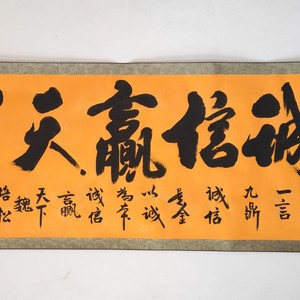 诚信赢天
一言
九鼎
诚信
是金
以诚
为本
诚信
赢
天下
魏